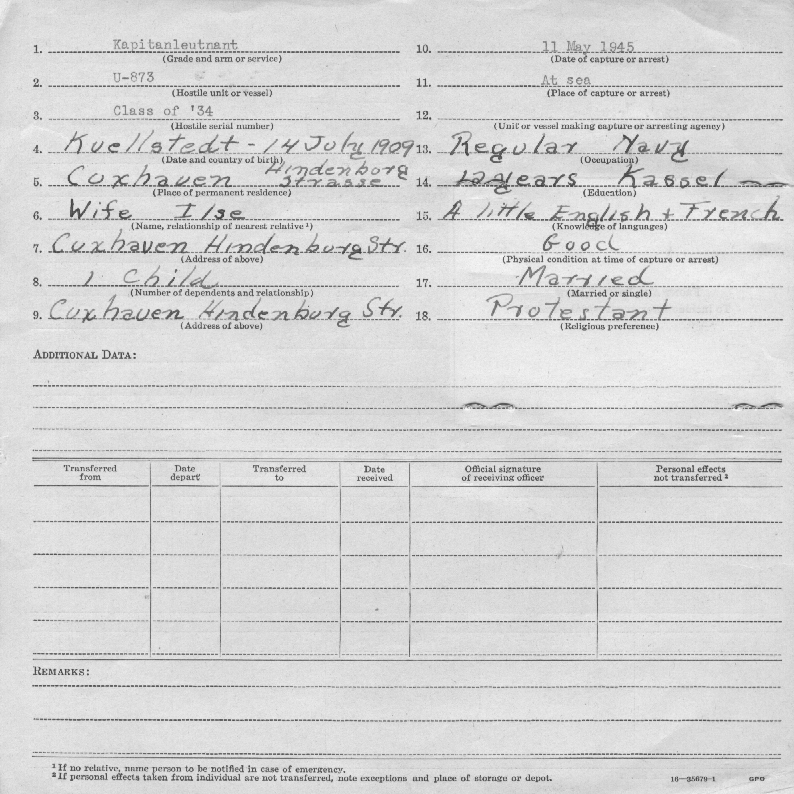 1. Kapitanleutnant
(Grade and arm or service)
2. U-873
(Hostile unit or vessel)
3. Class of '34
(Hostile serial number)
4. Kuellstedt - 14 July 1909
(Date and country of birth)
5. Cuxhaven Hindenborg Strasse
(Place of permanent residence)
6. Wife Ilse
(Name, relationship of nearest relative¹)
7. Cuxhaven Hindenburg Str.
(Address of above)
8. 1 Child
(Number of dependents and relationship)
9. Cuxhaven Hindenburg Str.
(Address of above)
10. 11 May 1945
(Date of capture or arrest)
11. At sea
(Place of capture or arrest)
12.
(Unit or vessel making capture or arresting agency)
13. Regular Navy
(Occupation)
14. years Kassel
(Education)
15. A little English + French
(Knowledge of languages)
16. Good
(Physical condition at time of capture or arrest)
17. Married
(Married or single)
18. Protestant
(Religious preference)
ADDITIONAL DATA:
Transferred from Date depart. Transferred to Date received Official signature of receiving officer Personal effects not transferred ²
REMARKS:
¹ If no relative, name person to be notified in case of emergency.
² If personal effects taken from individual are not transferred, note exceptions and place of storage or depot.
16—35679-1 GPO